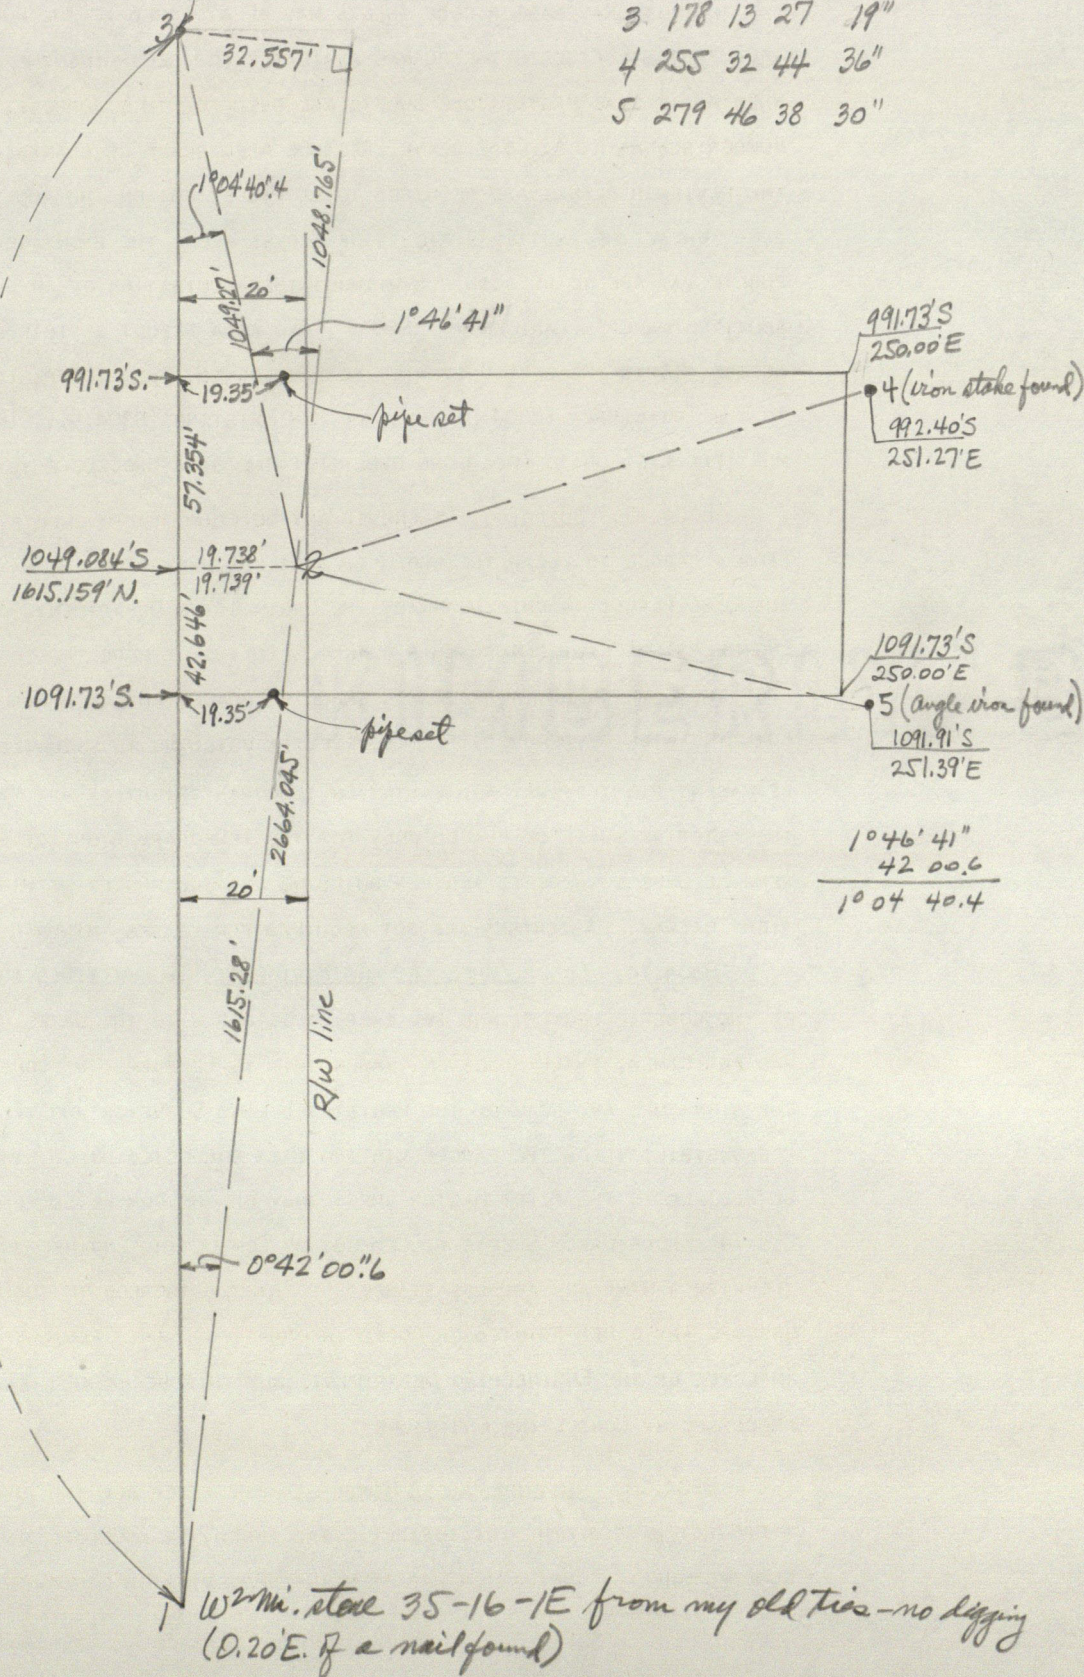 3 178 13 27 19"
4 255 32 44 36"
5 279 46 38 30"
3
32.557'
1°04'40".4
1048.765'
20'
1049.27'
1°46'41"
991.73'S.
19.35'
pipe set
991.73'S
250.00'E
4 (iron stake found)
992.40'S
251.27'E
57.354'
1049.084'S
1615.159'N.
19.738'
19.739'
2
42.646'
1091.73'S.
19.35'
pipe set
1091.73'S
250.00'E
5 (angle iron found)
1091.91'S
251.39'E
2664.045'
1°46'41"
42 00.6
1°04 40.4
20'
1615.28'
R/W line
0°42'00".6
1
W 2 Mi. stone 35-16-1E from my old ties - no digging
(0.20'E. of a nail found)